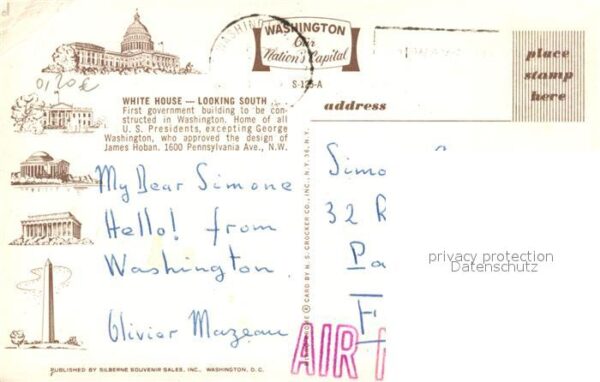 WASHINGTON
Our
Nation's Capital
S-125-A
place
stamp
here
address
WHITE HOUSE — LOOKING SOUTH
First government building to be con-
structed in Washington. Home of all
U. S. Presidents, excepting George
Washington, who approved the design of
James Hoban. 1600 Pennsylvania Ave., N.W.
My Dear Simone
Hello! from
Washington.
Olivier Mazeau
Simo
32 R
Pa
F
privacy protection
Datenschutz
AIR
CARD BY H. S. CROCKER CO., INC., N.Y. 36, N.Y.
PUBLISHED BY SILBERNE SOUVENIR SALES, INC., WASHINGTON, D.C.